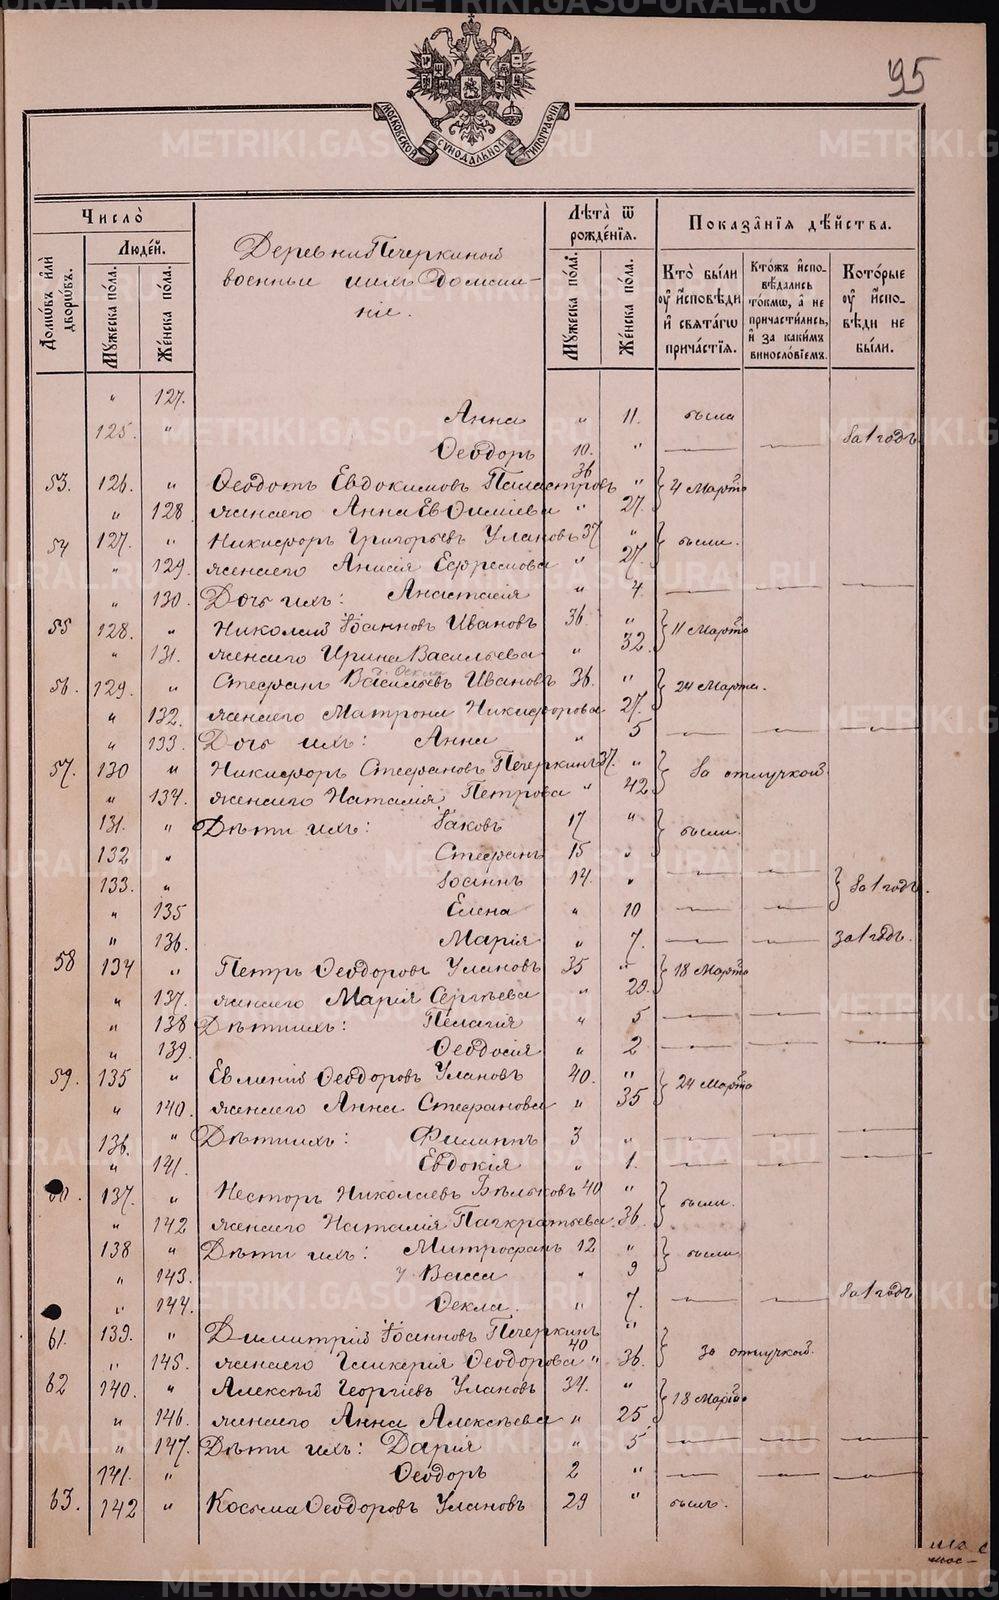 95
МОСКОВСКОЙ СУНОДАЛЬНОЙ ТИПОГРАФІИ
Число̀
Домѡвъ и҆лѝ дворѡвъ.
Людє́й.
Мꙋжеска по́ла.
Же́нска по́ла.
Деревни Печеркиной
военные и ихъ домашніе.
Лѣта̀ ѿ рожде́нїѧ.
Мꙋжеска по́ла.
Же́нска по́ла.
Показа̑нїѧ дѣ́йства.
Кто̀ бы́ли ᲂу҆ и҆́сповѣди и҆ свѧта́гѡ прича́стїѧ.
Кто́жъ и҆спо­вѣдались то́кмѡ, а҆ не причасти́лись, и҆ за каки́мъ винослов́їемъ.
Кото́рые ᲂу҆ и҆́спо­вѣди не бы́ли.
" 127. Анна " 11. была
125. " Ѳеодоръ 10. " — — За 1 годъ
53. 126. " Ѳеодотъ Евдокимовъ 36 " 4 Марта
" 128 жена его Анна Евѳиміева " 27.
54 127. " Никифоръ Григорьевъ Улановъ 37 " были.
" 129. жена его Анисія Ефремова " 27.
" 130. Дочь ихъ: Анастасія " 4. — — —
55 128. " Николай Іоанновъ Ивановъ 36 " 11 Марта
" 131. жена его Ирина Васильева " 32.
56. 129. " Стефанъ Васильевъ Ивановъ 36. " 24 Марта.
" 132. жена его Матрона Никифорова " 27.
" 133. Дочь ихъ: Анна " 5 — — —
57. 130 " Никифоръ Стефановъ Печеркинъ 37. " За отлучкой
" 134. жена его Наталія Петрова " 42
131. " Дѣти ихъ: Іаковъ 17 " были.
132 " Стефанъ 15 "
133. " Іоаннъ 14. " — — За 1 годъ.
" 135 Елена " 10 — —
" 136. Марія " 7. — — За 1 годъ.
58 134 " Петръ Ѳеодоровъ Улановъ 35 " 18 Марта
" 137. жена его Марія Сергѣева " 29.
" 138 Дѣти ихъ: Пелагія " 5 — — —
" 139. Ѳеодосія " 2 — — —
59. 135 " Евменій Ѳеодоровъ Улановъ 40. " 24 Марта
" 140. жена его Анна Стефанова " 35
136. " Дѣти ихъ: Филиппъ 3 " — — —
" 141. Евдокія " 1. — — —
60. 137. " Несторъ Николаевъ Бѣльковъ 40 " были.
" 142 жена его Наталія Панкратьева 36.
138 " Дѣти ихъ: Митрофанъ 12 " были
" 143. Васса " 9
" 144. Ѳекла. " 7. — — За 1 годъ
61. 139. " Димитрій Іоанновъ Печеркинъ 40 " За отлучкой.
" 145. жена его Гликерія Ѳеодорова " 36.
62 140. " Алексѣй Георгіевъ Улановъ 34. " 18 Марта
" 146. жена его Анна Алексѣева " 25
" 147. Дѣти ихъ: Дарія " 5 — — —
141. " Ѳеодоръ 2 " — — —
63. 142 " Косьма Ѳеодоровъ Улановъ 29 " былъ.
METRIKI.GASO-URAL.RU